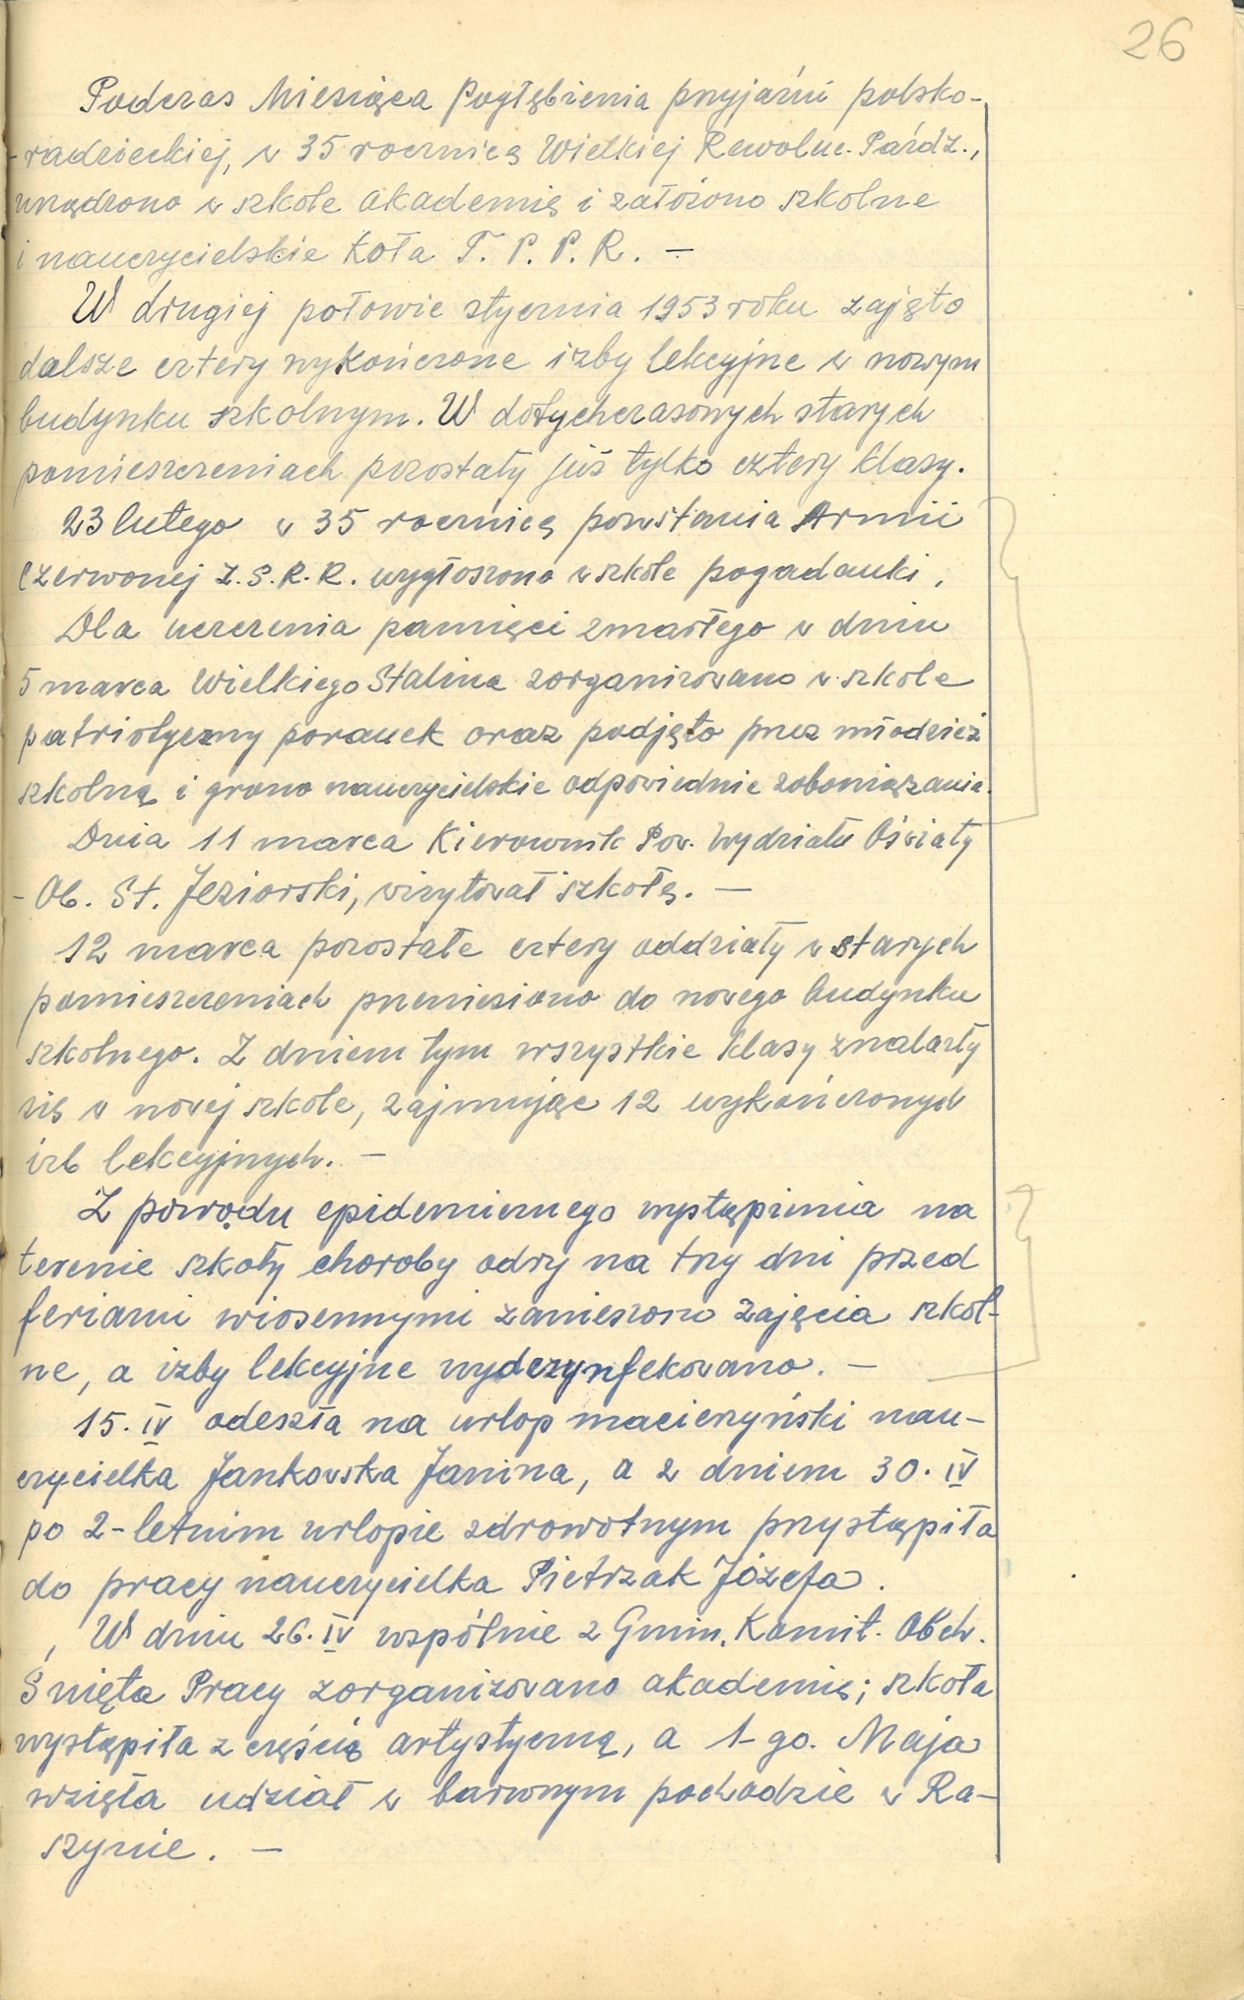 26
Podczas Miesiąca Pogłębienia przyjaźni polsko-
-radzieckiej, w 35 rocznicę Wielkiej Rewoluc. Paźdz.,
urządzono w szkole akademię i założono szkolne
i nauczycielskie Koła T. P. P. R. —
W drugiej połowie stycznia 1953 roku zajęto
dalsze cztery wykończone izby lekcyjne w nowym
budynku szkolnym. W dotychczasowych starych
pomieszczeniach pozostały już tylko cztery klasy.
23 lutego w 35 rocznicę powstania Armii
Czerwonej Z. S. R. R. wygłoszono w szkole pogadanki.
Dla uczczenia pamięci zmarłego w dniu
5 marca Wielkiego Stalina zorganizowano w szkole
patriotyczny poranek oraz podjęto przez młodzież
szkolną i grono nauczycielskie odpowiednie zobowiązania.
Dnia 11 marca Kierownik Pow. Wydziału Oświaty
- Ob. St. Jeziorski, wizytował szkołę. —
12 marca pozostałe cztery oddziały w starych
pomieszczeniach przeniesiono do nowego budynku
szkolnego. Z dniem tym wszystkie klasy znalazły
się w nowej szkole, zajmując 12 wykończonych
izb lekcyjnych. —
Z powodu epidemicznego wystąpienia na
terenie szkoły choroby odry na trzy dni przed
feriami wiosennymi zawieszono zajęcia szkol-
ne, a izby lekcyjne wydezynfekowano. —
15. IV odeszła na urlop macierzyński nau-
czycielka Jankowska Janina, a z dniem 30. IV
po 2-letnim urlopie zdrowotnym przystąpiła
do pracy nauczycielka Pietrzak Józefa.
W dniu 26. IV wspólnie z Gmin. Komit. Obch.
Święta Pracy zorganizowano akademię; szkoła
wystąpiła z częścią artystyczną, a 1-go. Maja
wzięła udział w barwnym pochodzie w Ra-
szynie. —